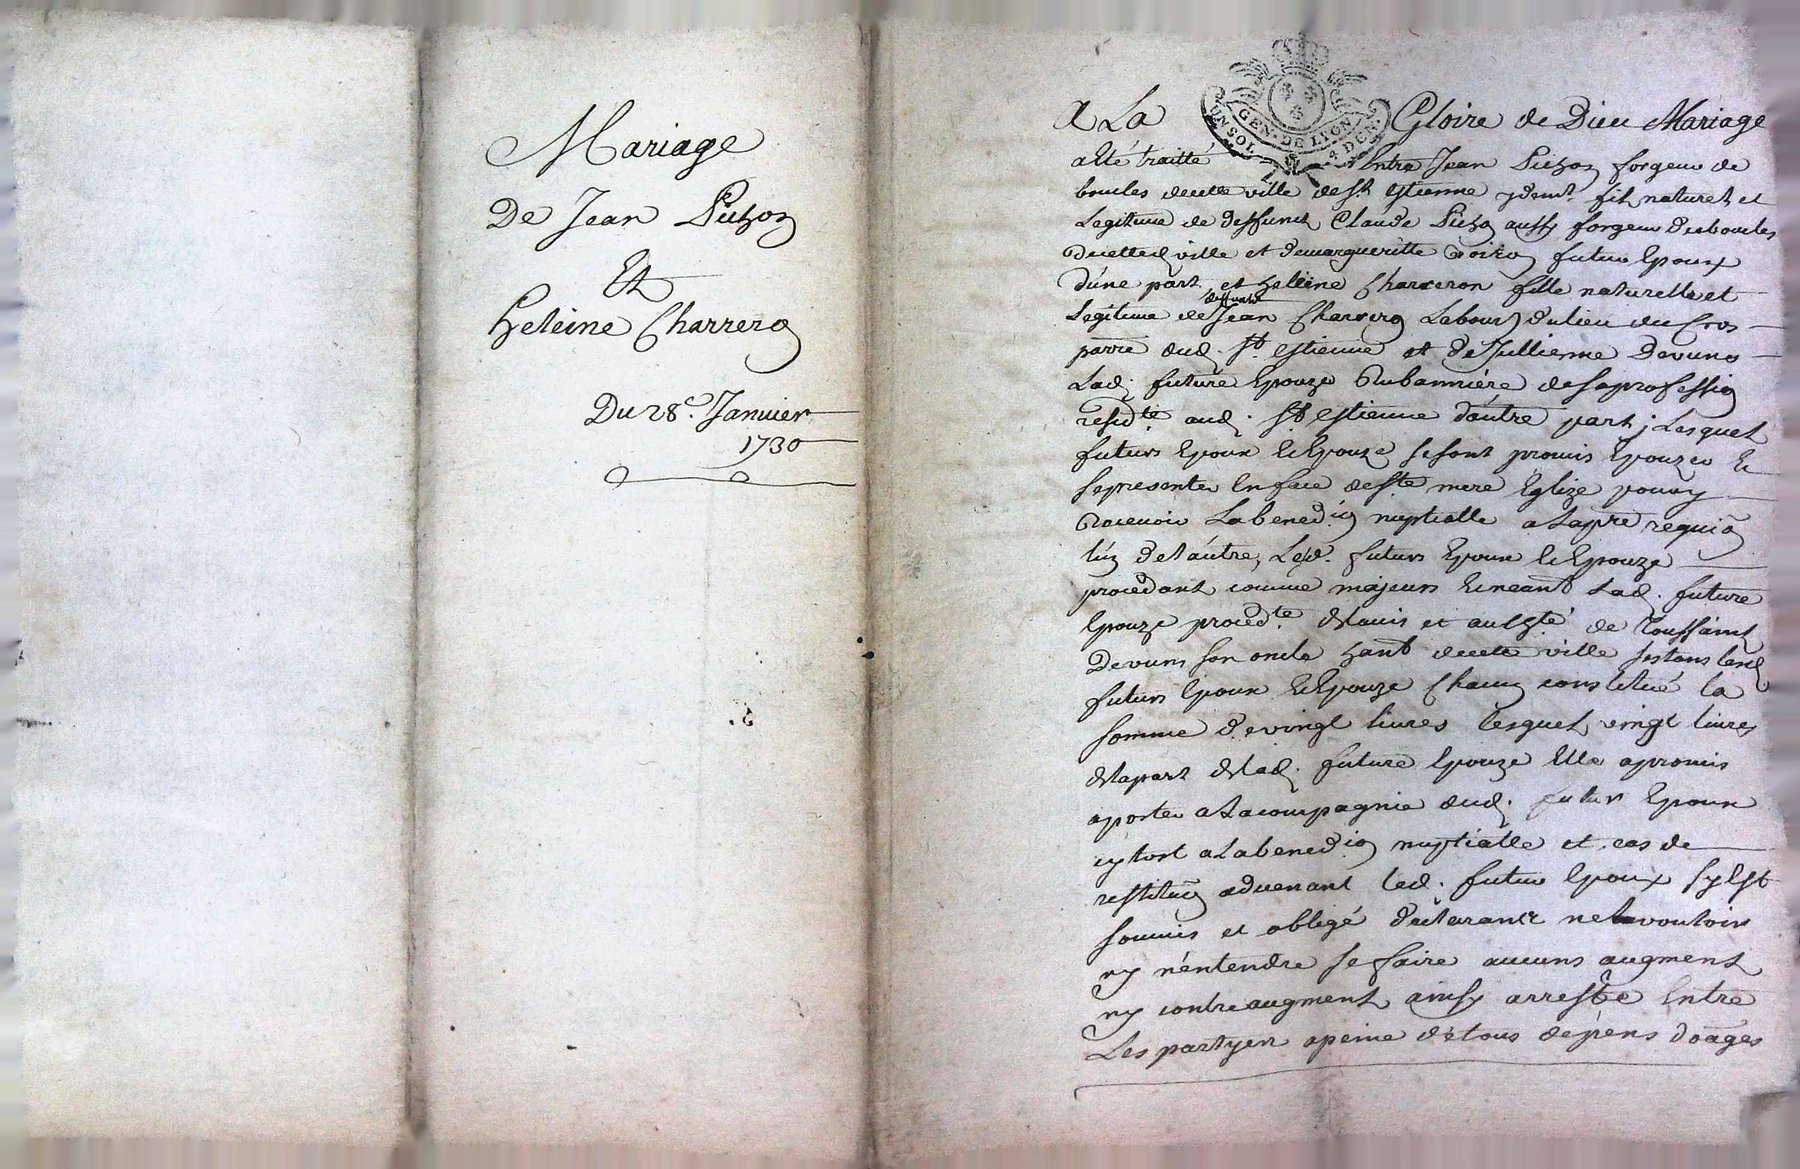 Mariage
De Jean Pichon
Et
Heleine Charreron
Du 28e. Januier
1730
A La Gloire de Dieu Mariage
GEN. DE LYON
UN SOL 4 DEN.
a esté traitté Entre Jean Pichon forgeur de
boucles de cette ville de St. estienne y demt. fils naturel et
Legitime de deffunct Claude Pichon aussy forgeur de boucles
de cette d ville et de marguerite futur Epoux
d'une part, et Helleine Charreron fille naturelle et
deffunt
Legitime de Jean Charreron Labourr du lieu du Cros
parre dud. St. estienne et de Jullienne Devuns
Lad. future Epouze Rubannière de sa profession
residte aud. St estienne d'autre part; Lesquels
futurs Epoux Et Epouze se sont promis Epouzer Et
se presenter En face de Ste mere Eglize pour y
Recevoir La benedion nuptialle a La pre requion
l'un de l'autre, Lesd. futurs Epoux Et Epouze
procedant comme majeurs Et neant Lad. future
Epouze procedte de lauis et authté de Toussaint
Devuns son oncle hant de cette ville se sont lesd
futurs Epoux Et Epouze Chacun constitué la
somme de vingt liures lesquels vingt liures
de la part de lad. future Epouze Elle a promis
aporter a La compagnie dud. futur Epoux
sy tost a La benedion nuptialle et cas de
restituon aduenant led. futur Epoux s'y Est
soumis et obligé declarants ne vouloir
ny n'entendre se faire aucuns augment
ny contre augment, ainsy arresté Entre
Les partyes a peine de tous depens doages